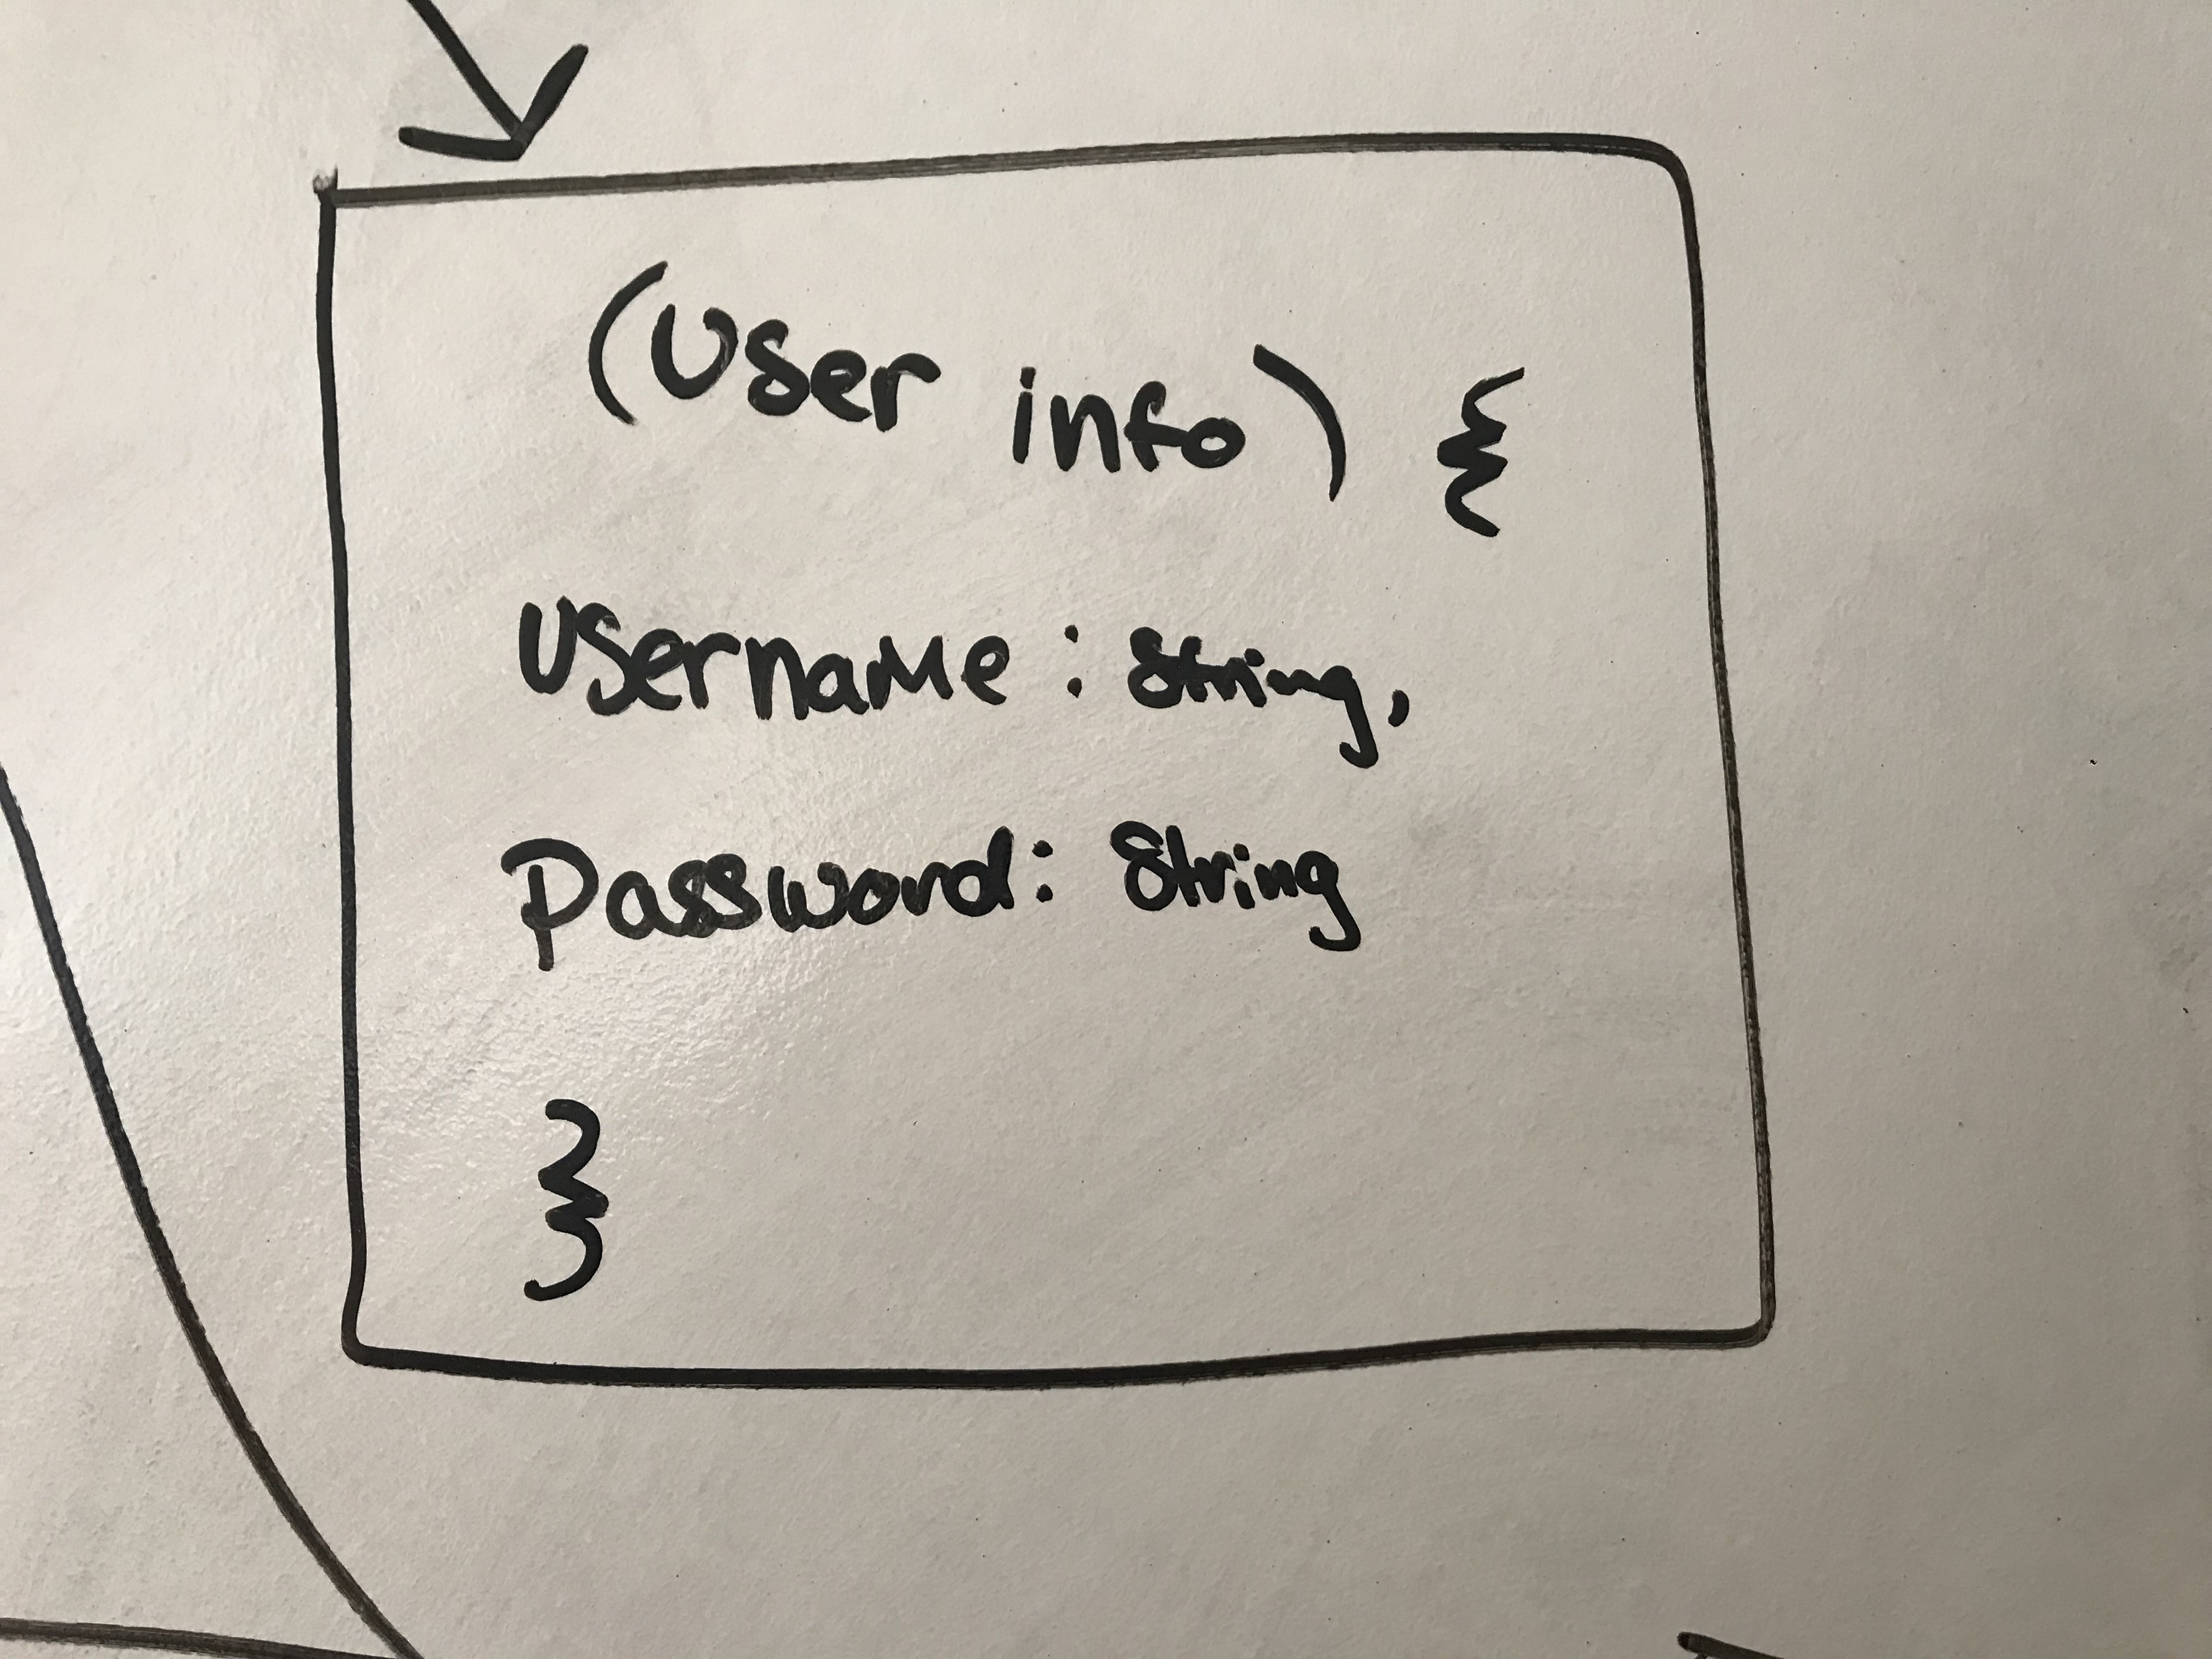 (User info) {
Username: String,
Password: String
}